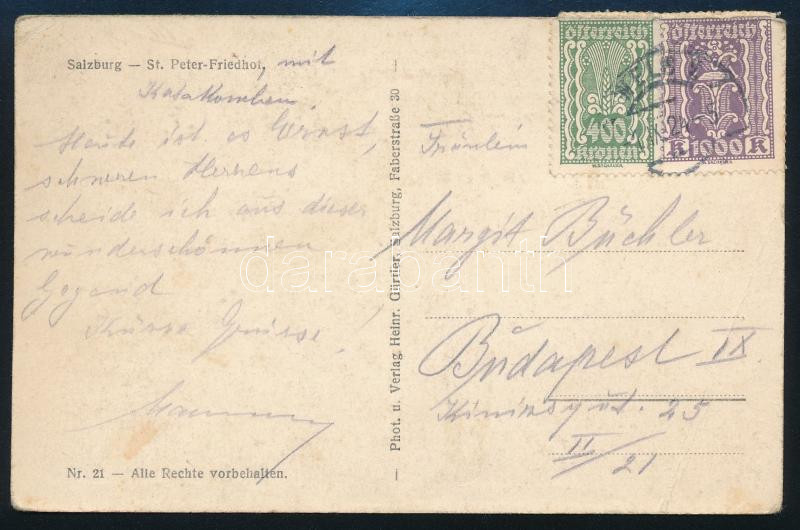 Salzburg — St. Peter-Friedhof, mit
Katakomben.
Heute ist es Ernst,
schweren Herzens
scheide ich aus dieser
wunderschönnen
Gegend
Küsse Grüsse
Nr. 21 — Alle Rechte vorbehalten.
Phot. u. Verlag Heinr. Gürtler, Salzburg, Faberstraße 30
österreich
400
kronen
österreich
K 1000 K
Fräulein
Margit Büchler
Budapest IX.
25
II/21
darabanth